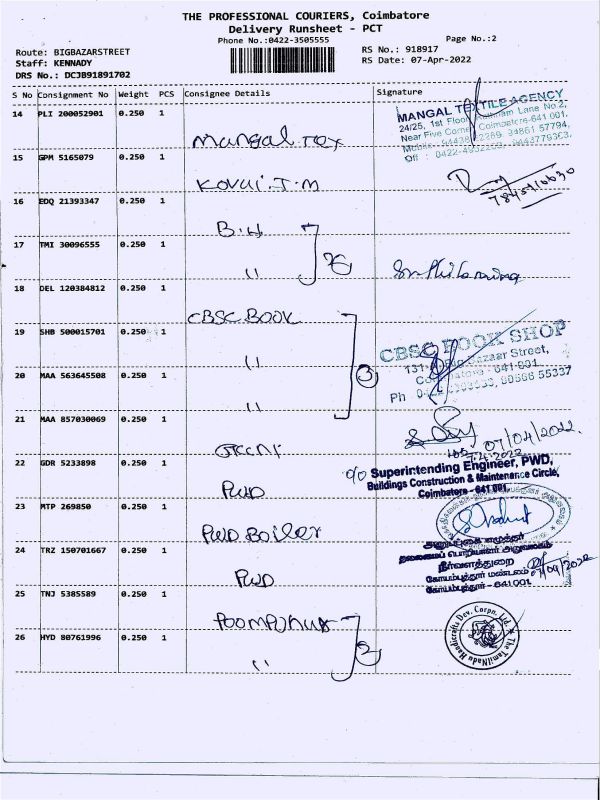 THE PROFESSIONAL COURIERS, Coimbatore
Delivery Runsheet - PCT
Phone No.:0422-3505555
Page No.:2
Route: BIGBAZARSTREET
Staff: KENNADY
DRS No.: DCJB91891702
RS No.: 918917
RS Date: 07-Apr-2022
S No Consignment No Weight PCS Consignee Details Signature
14 PLI 200052901 0.250 1 Mangal Tex
MANGAL TEXTILE AGENCY
24/25, 1st Floor, Lane No.2,
Near Five Corner, Coimbatore-641 001.
15 GPM 5165079 0.250 1 Kovai.T.M
16 EDQ 21393347 0.250 1 B.H
17 TMI 30096555 0.250 1 "
18 DEL 120384812 0.250 1 CBSC.BOOK
19 SHB 500015701 0.250 1 "
CBSC BOOK SHOP
Bazaar Street,
Coimbatore - 641 001.
20 MAA 563645508 0.250 1 "
3
21 MAA 857030069 0.250 1
07/04/2022
22 GDR 5233898 0.250 1 PWD
O/o Superintending Engineer, PWD,
Buildings Construction & Maintenance Circle,
Coimbatore - 641 001.
23 MTP 269850 0.250 1 PWD Boiler
24 TRZ 150701667 0.250 1 PWD
நீர்வளத்துறை
கோயம்புத்தூர் மண்டலம்
கோயம்புத்தூர் - 641 001
25 TNJ 5385589 0.250 1 Poompuhar
26 HYD 80761996 0.250 1 "
2
The TamilNadu Handicrafts Dev. Corpn. Ltd.